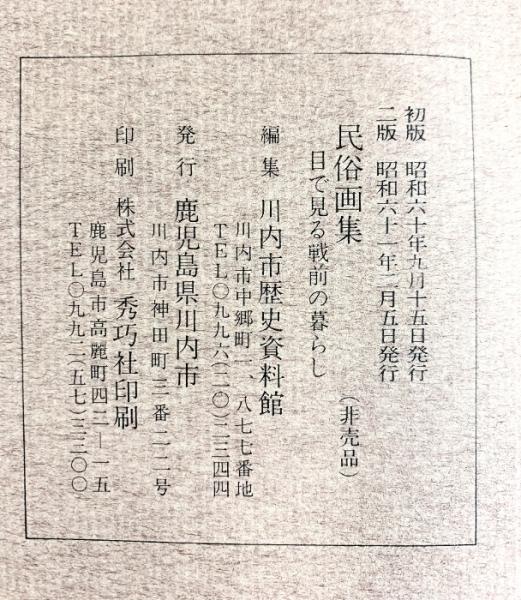 初版　昭和六十年九月十五日発行
二版　昭和六十一年二月五日発行
民俗画集
目で見る戦前の暮らし　（非売品）
編集　川内市歴史資料館
川内市中郷町二、八七七番地
TEL〇九九六（二〇）二三四四
発行　鹿児島県川内市
川内市神田町三番二二号
印刷　株式会社　秀巧社印刷
鹿児島市高麗町四二―一五
TEL〇九九二（五七）三三〇〇